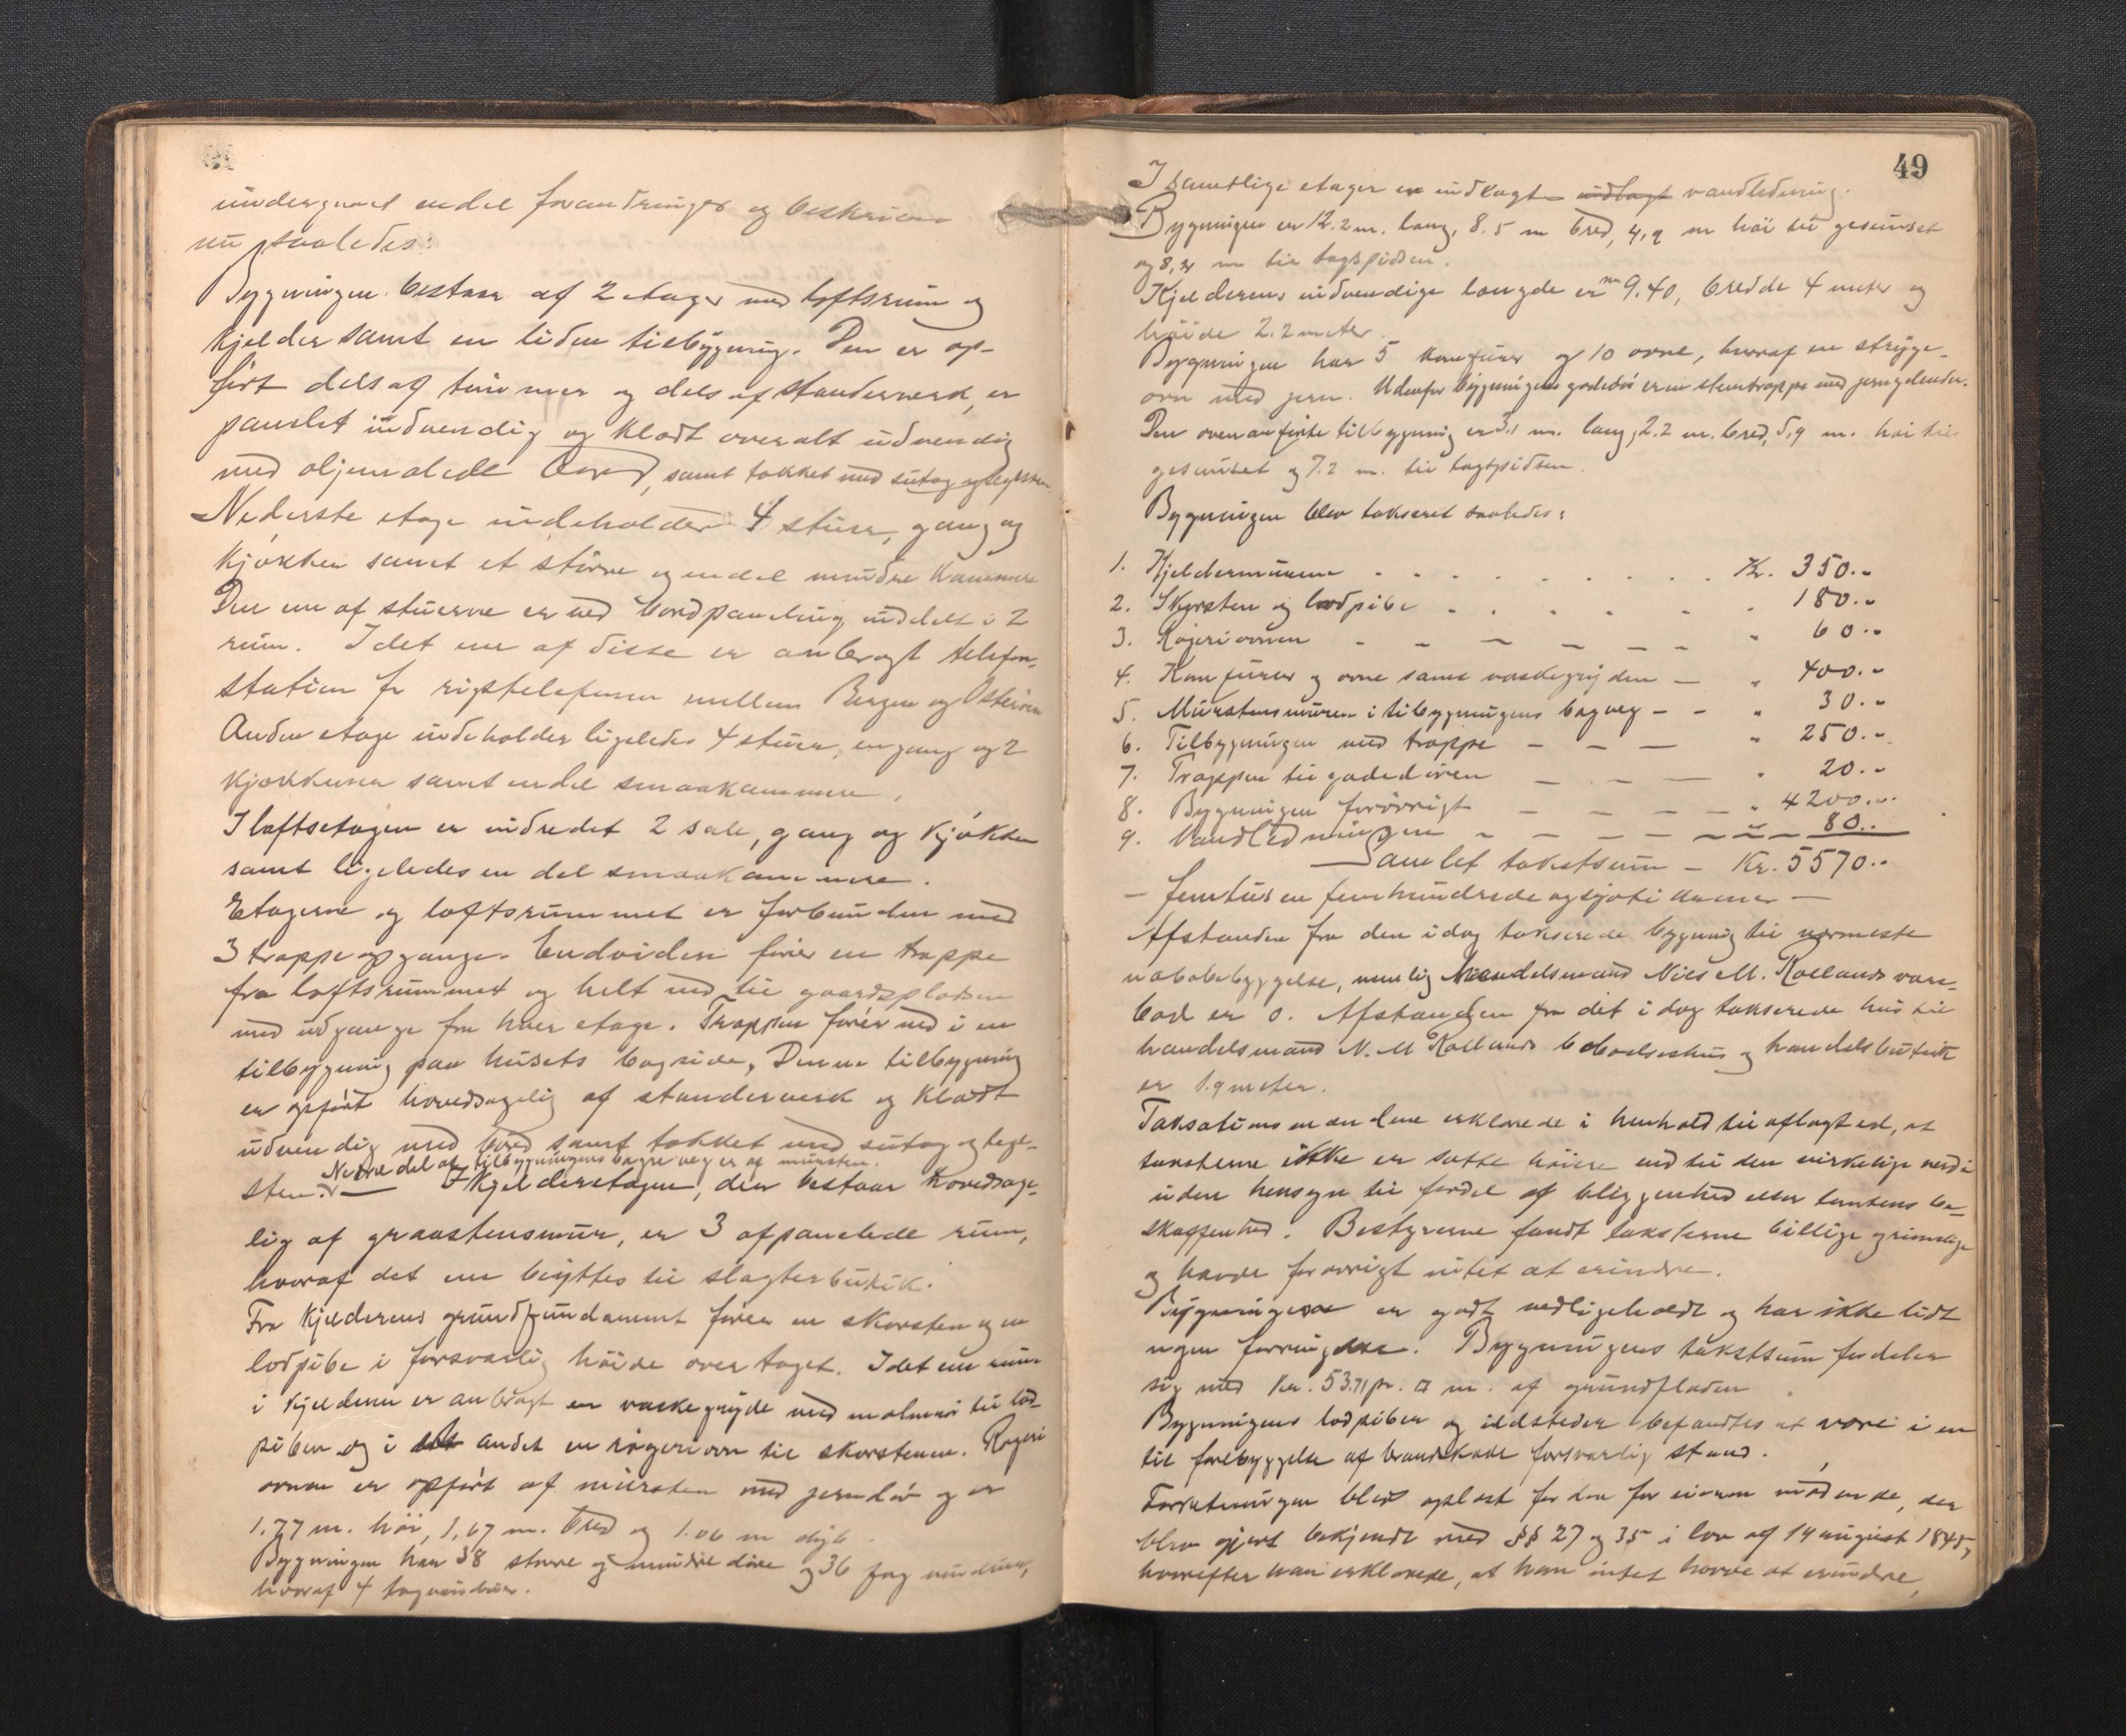 undergaaet endel forandringer og beskrives
nu saaledes:
Bygningen bestaar af 2 etager med loftsrum og
kjelder samt en liden tilbygning. Den er op-
ført dels af tømmer og dels af standerverk, er
panelet indvendig og klædt overalt udvendig
med oljemalede bord, samt tækket med sutag og teglsten
Nederste etage indeholder 4 stuer, gang og
kjøkken samt et större og endel mindre kammere
Den ene af stuerne er ved bordpaneling inddelt i 2
rum. I det ene af disse er anbragt telefon-
station for rigstelefonen mellem Bergen og Osterøen
Anden etage indeholder ligeledes 4 stuer, en gang og 2
kjøkkener samt endel smaakammere.
I loftsetagen er indredet 2 sale, gang og kjøkken
samt ligeledes en del smaakammere.
Etagerne og loftsrummet er forbunden med
3 trappeopgange. Endvidere fører en trappe
fra loftsrummet og helt ned til gaardspladsen
med udgange fra hver etage. Trappen fører ned i en
tilbygning paa husets bagside, Denne tilbygning
er opført hovedsagelig af standerverk og klædt
udvendig med bord samt tækket med sutag og tegl-
Nedre del af tilbygningens bagre veg er af mursten.
sten. I kjelderetagen, der bestaar hovedsage-
lig af graastensmur, er 3 afpanelede rum,
hvoraf det ene benyttes til slagterbutik.
Fra kjelderens grundfundament fører en skorsten og en
lodpibe i forsvarlig høide over taget. I det ene rum
i kjelderen er anbragt en vaskegryde med malmrør til lod-
piben og i det andet en røgeriovn til skorstenen. Røgeri
ovnen er opført af mursten med jerndør og er
1.77 m. høi, 1,67 m. bred og 1.06 m dyb.
Bygningen har 38 større og mindre døre og 36 fag vinduer,
hvoraf 4 tagvinduer.
49
I samtlige etager er indlagt indlagt vandledning.
Bygningen er 12.2 m. lang, 8.5 m bred, 4,9 m høi til gesimset
og 8,2 m til tagspidsen.
Kjelderens indvendige længde er m 9.40, bredde 4 meter og
høide 2.2 meter.
Bygningen har 5 komfurer og 10 ovne, hvoraf en stryge-
ovn med jern. Udenfor bygningens gadedør er en stentrappe med jerngelender.
Den ovenanførte tilbygning er 3,1 m. lang, 2.2 m. bred, 5,9 m. høi til
gesimset og 7.2 m. til tagspidsen.
Bygningen blev takseret saaledes:
1. Kjeldermurene Kr. 350.-
2. Skorsten og lodpibe " 180.-
3. Røgeriovnen " 60.-
4. Komfurer og ovne samt vaskegryden " 400.-
5. Murstensmuren i tilbygningens bagveg " 30.-
6. Tilbygningen med trappe " 250.-
7. Trappen til gadedøren " 20.-
8. Bygningen forøvrigt " 4200.-
9. Vandledningen " 80.-
Samlet takstsum - Kr. 5570.-
- femtusen femhundrede og sytti kroner -
Afstanden fra den idag takserede bygning til nærmeste
nabobebyggelse, nemlig handelsmand Niels M. Rollands vare-
bod er 0. Afstanden fra det idag takserede hus til
handelsmand N. M Rollands beboelseshus og handelsbutik
er 1.9 meter.
Taksationsmændene erklærede i henhold til aflagt ed, at
taksterne ikke er satte høiere end til den virkelige værdi
uden hensyn til fordel af beliggenhed eller tomtens be-
skaffenhed. Bestyrerne fandt taksterne billige og rimelige
og havde forøvrigt intet at erindre.
Bygningerne er godt vedligeholdt og har ikke lidt
nogen forringelse. Bygningens takstsum fordeler
sig med Kr. 53.71 pr. □ m. af grundfladen.
Bygningens lodpiber og ildsteder befandtes at være i en
til forebyggelse af brandskade forsvarlig stand.
Forretningen blev oplæst for den for eieren mødende, der
blev gjort bekjendt med §§ 27 og 35 i lov af 19 august 1845,
hvorefter han erklærede, at han intet havde at erindre,